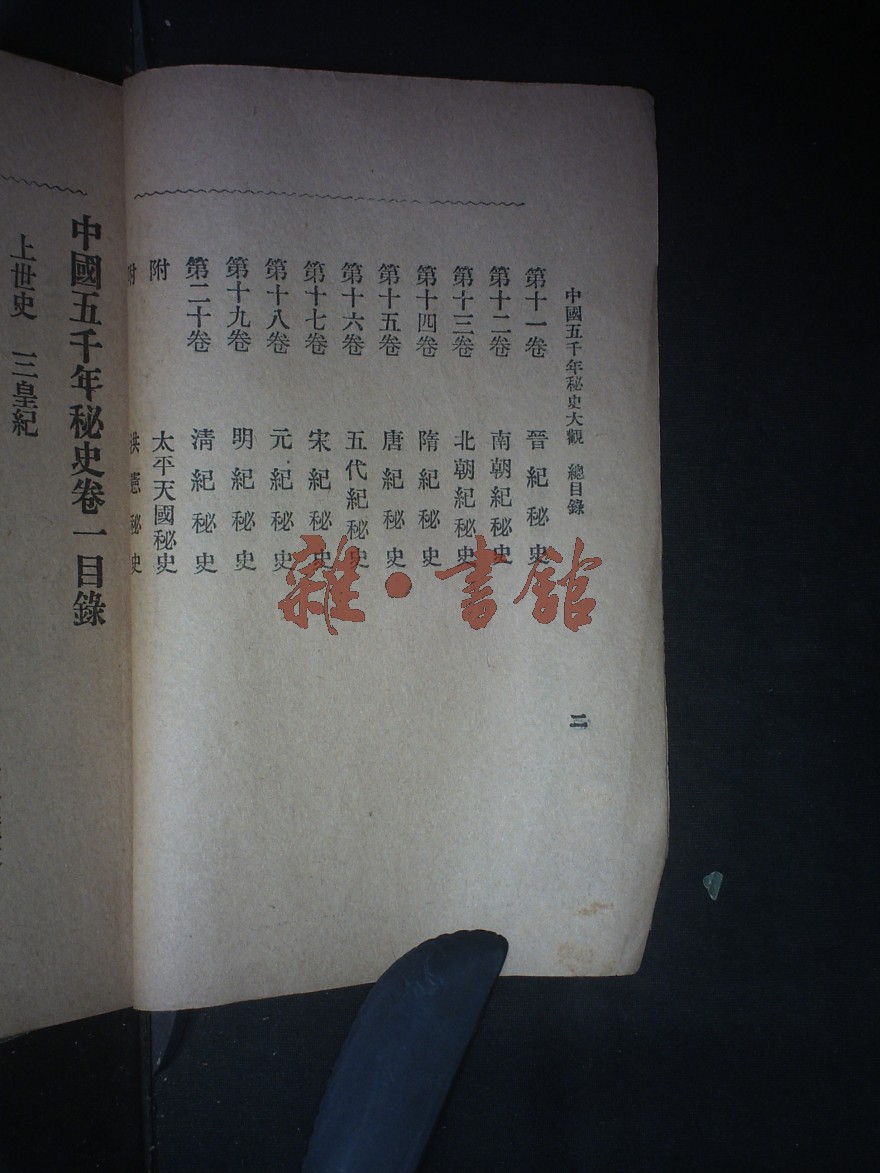 中國五千年秘史大觀 總目錄
二
第十一卷 晉紀秘史
第十二卷 南朝紀秘史
第十三卷 北朝紀秘史
第十四卷 隋紀秘史
第十五卷 唐紀秘史
第十六卷 五代紀秘史
第十七卷 宋紀秘史
第十八卷 元紀秘史
第十九卷 明紀秘史
第二十卷 清紀秘史
附 太平天國秘史
附 洪憲秘史
中國五千年秘史卷一目錄
上世史 三皇紀
雜·書館